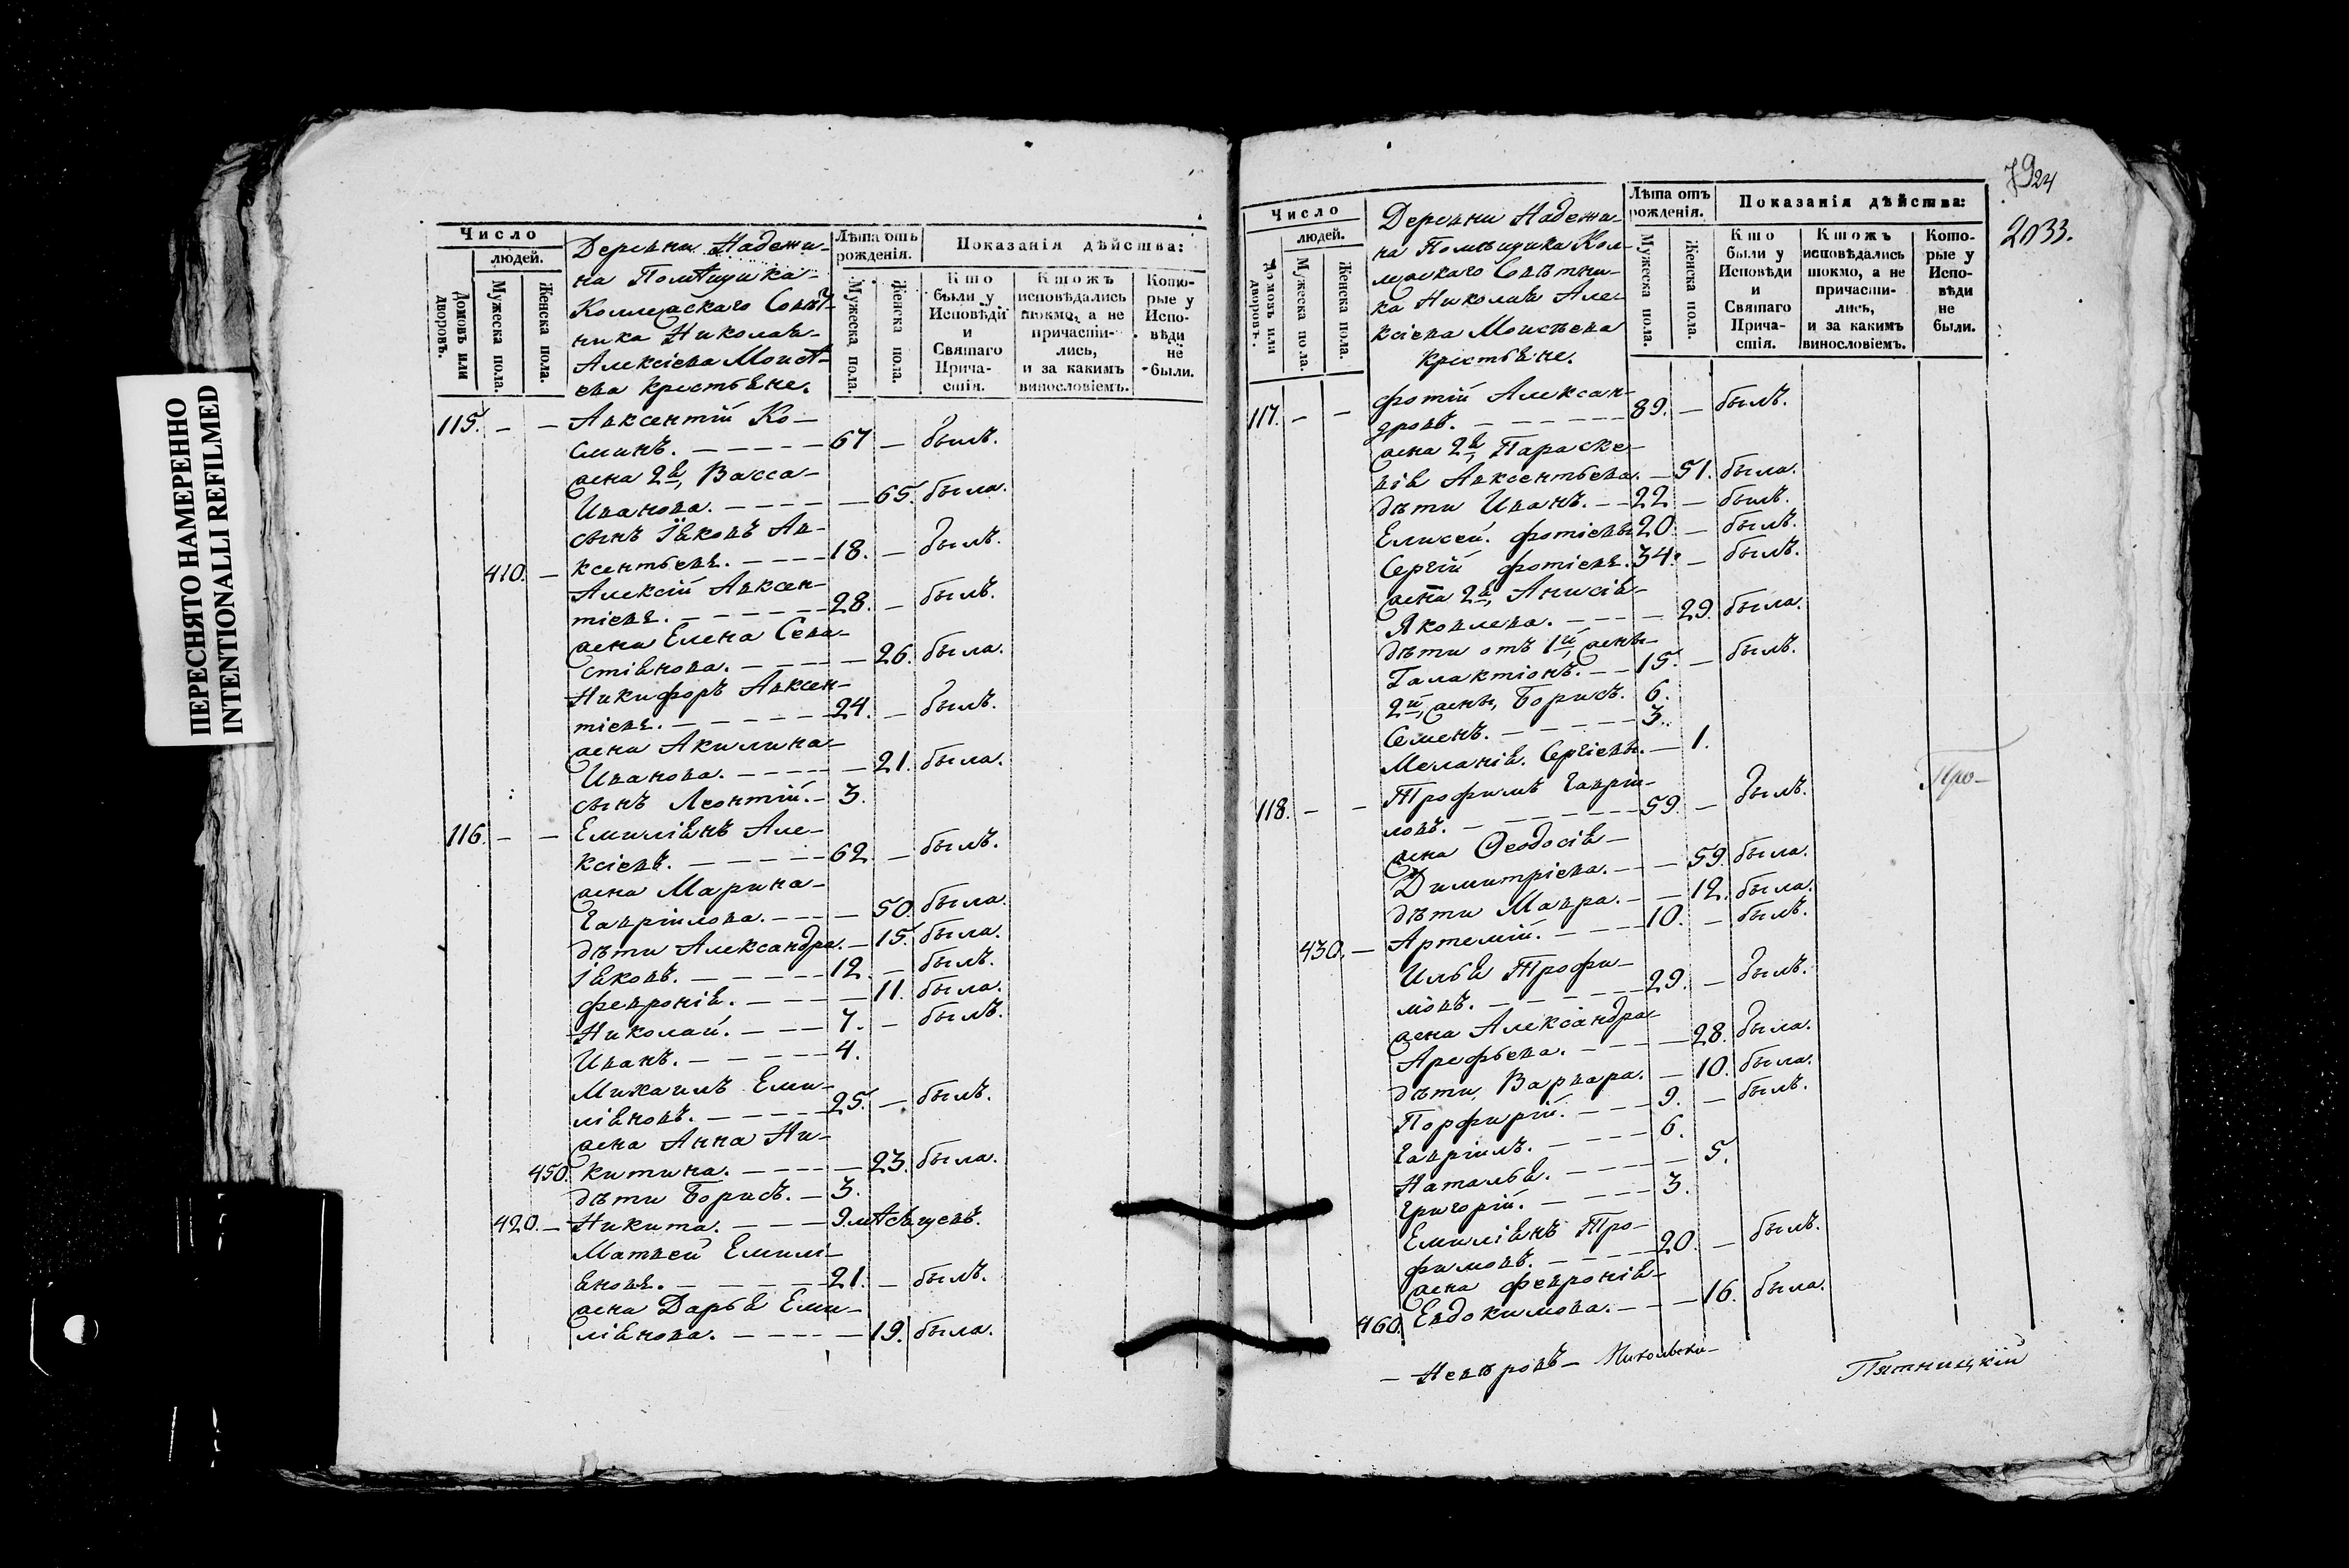 ПЕРЕСНЯТО НАМЕРЕННО
INTENTIONALLI REFILMED
Число
людей.
Домовъ или дворовъ.
Мужеска пола.
Женска пола.
Деревни Надежи-
на Помѣщика
Коллежскаго Совѣт-
ника Николая
Алексіева Моисѣ-
ева крестьяне.
Лѣта отъ рожденія.
Мужеска пола.
Женска пола.
Показанія дѣйства:
Кто были у Исповѣди и Святаго Прича-стія.
Ктожъ исповѣдались токмо, а не причасти-лись, и за какимъ винословіемъ.
Кото-рые у Испо-вѣди не были.
115. — — Авксентій Ко-
сминъ. — — — 67 — былъ.
жена 2я, Васса
Иванова. — — — — 65. была.
сынъ Іяковъ Ав-
410. — ксентьевъ. — — — 18. — былъ.
Алексій Авксен-
тіевъ. — — — 28. — былъ.
жена Елена Сева-
стіянова. — — — — 26. была.
Никифоръ Авксен-
тіевъ. — — — 24. — былъ.
жена Акилина
Иванова. — — — — 21. была.
сынъ Леонтій. — 3.
116. — — Емиліянъ Але-
ксіевъ. — — — 62. — былъ.
жена Марина
Гавріилова. — — — 50. была.
дѣти Александра. — 15. была.
Іяковъ. — — — 12. — былъ.
Февронія. — — — 11. была.
Николай. — — — 7. — былъ.
Иванъ. — — — 4.
Михаилъ Еми-
ліяновъ. — — — 25. — былъ.
жена Анна Ни-
450. китина. — — — — 23. была.
дѣти Борисъ. — 3.
420. — Никита. — — — 9 мѣсяцевъ.
Матвей Емилі-
яновъ. — — — 21. — былъ.
жена Дарья Еми-
ліянова. — — — — 19. была.
79 24
2033.
Число
людей.
Домовъ или дворовъ.
Мужеска пола.
Женска пола.
Деревни Надежи-
на Помѣщика Кол-
лежскаго Совѣтни-
ка Николая Але-
ксіева Моисѣева
крестьяне.
Лѣта отъ рожденія.
Мужеска пола.
Женска пола.
Показанія дѣйства:
Кто были у Исповѣди и Святаго Прича-стія.
Ктожъ исповѣдались токмо, а не причасти-лись, и за какимъ винословіемъ.
Кото-рые у Испо-вѣди не были.
117. — — Фотій Алексан-
дровъ. — — — 89. — былъ.
жена 2я, Параске-
вія Авксентьева. — 51. была.
дѣти Иванъ. — — 22 — былъ.
Елисей. Фотіевы 20. — былъ.
Сергій Фотіевъ. 34. — былъ.
жена 2я, Анисія
Яковлева. — — — — 29. была.
дѣти отъ 1й, жены
Галактіонъ. — — 15. — былъ.
2й, жены, Борисъ. 6.
Семенъ. — — — 3.
Меланія. Сергіевы. — 1.
118. — — Трофимъ Гаврі-
ловъ. — — — 59. — былъ.
жена Ѳеодосія
Димитріева. — — — 59. была.
дѣти Мавра. — — 12. была.
430. — Артемій. — — — 10. — былъ.
Илья Трофи-
мовъ. — — — 29. — былъ.
жена Александра
Арефьева. — — — — 28. была.
дѣти Варвара. — 10. была.
Порфирій. — — — 9. — былъ.
Гавріилъ. — — — 6.
Наталья. — — — — 5.
Григорій. — — — 3.
Емиліянъ Тро-
фимовъ. — — — 20. — былъ.
жена Февронія
460. Евдокимова. — — — 16. была.
Про-
— Невѣровъ — Никольски-
Пятницкій